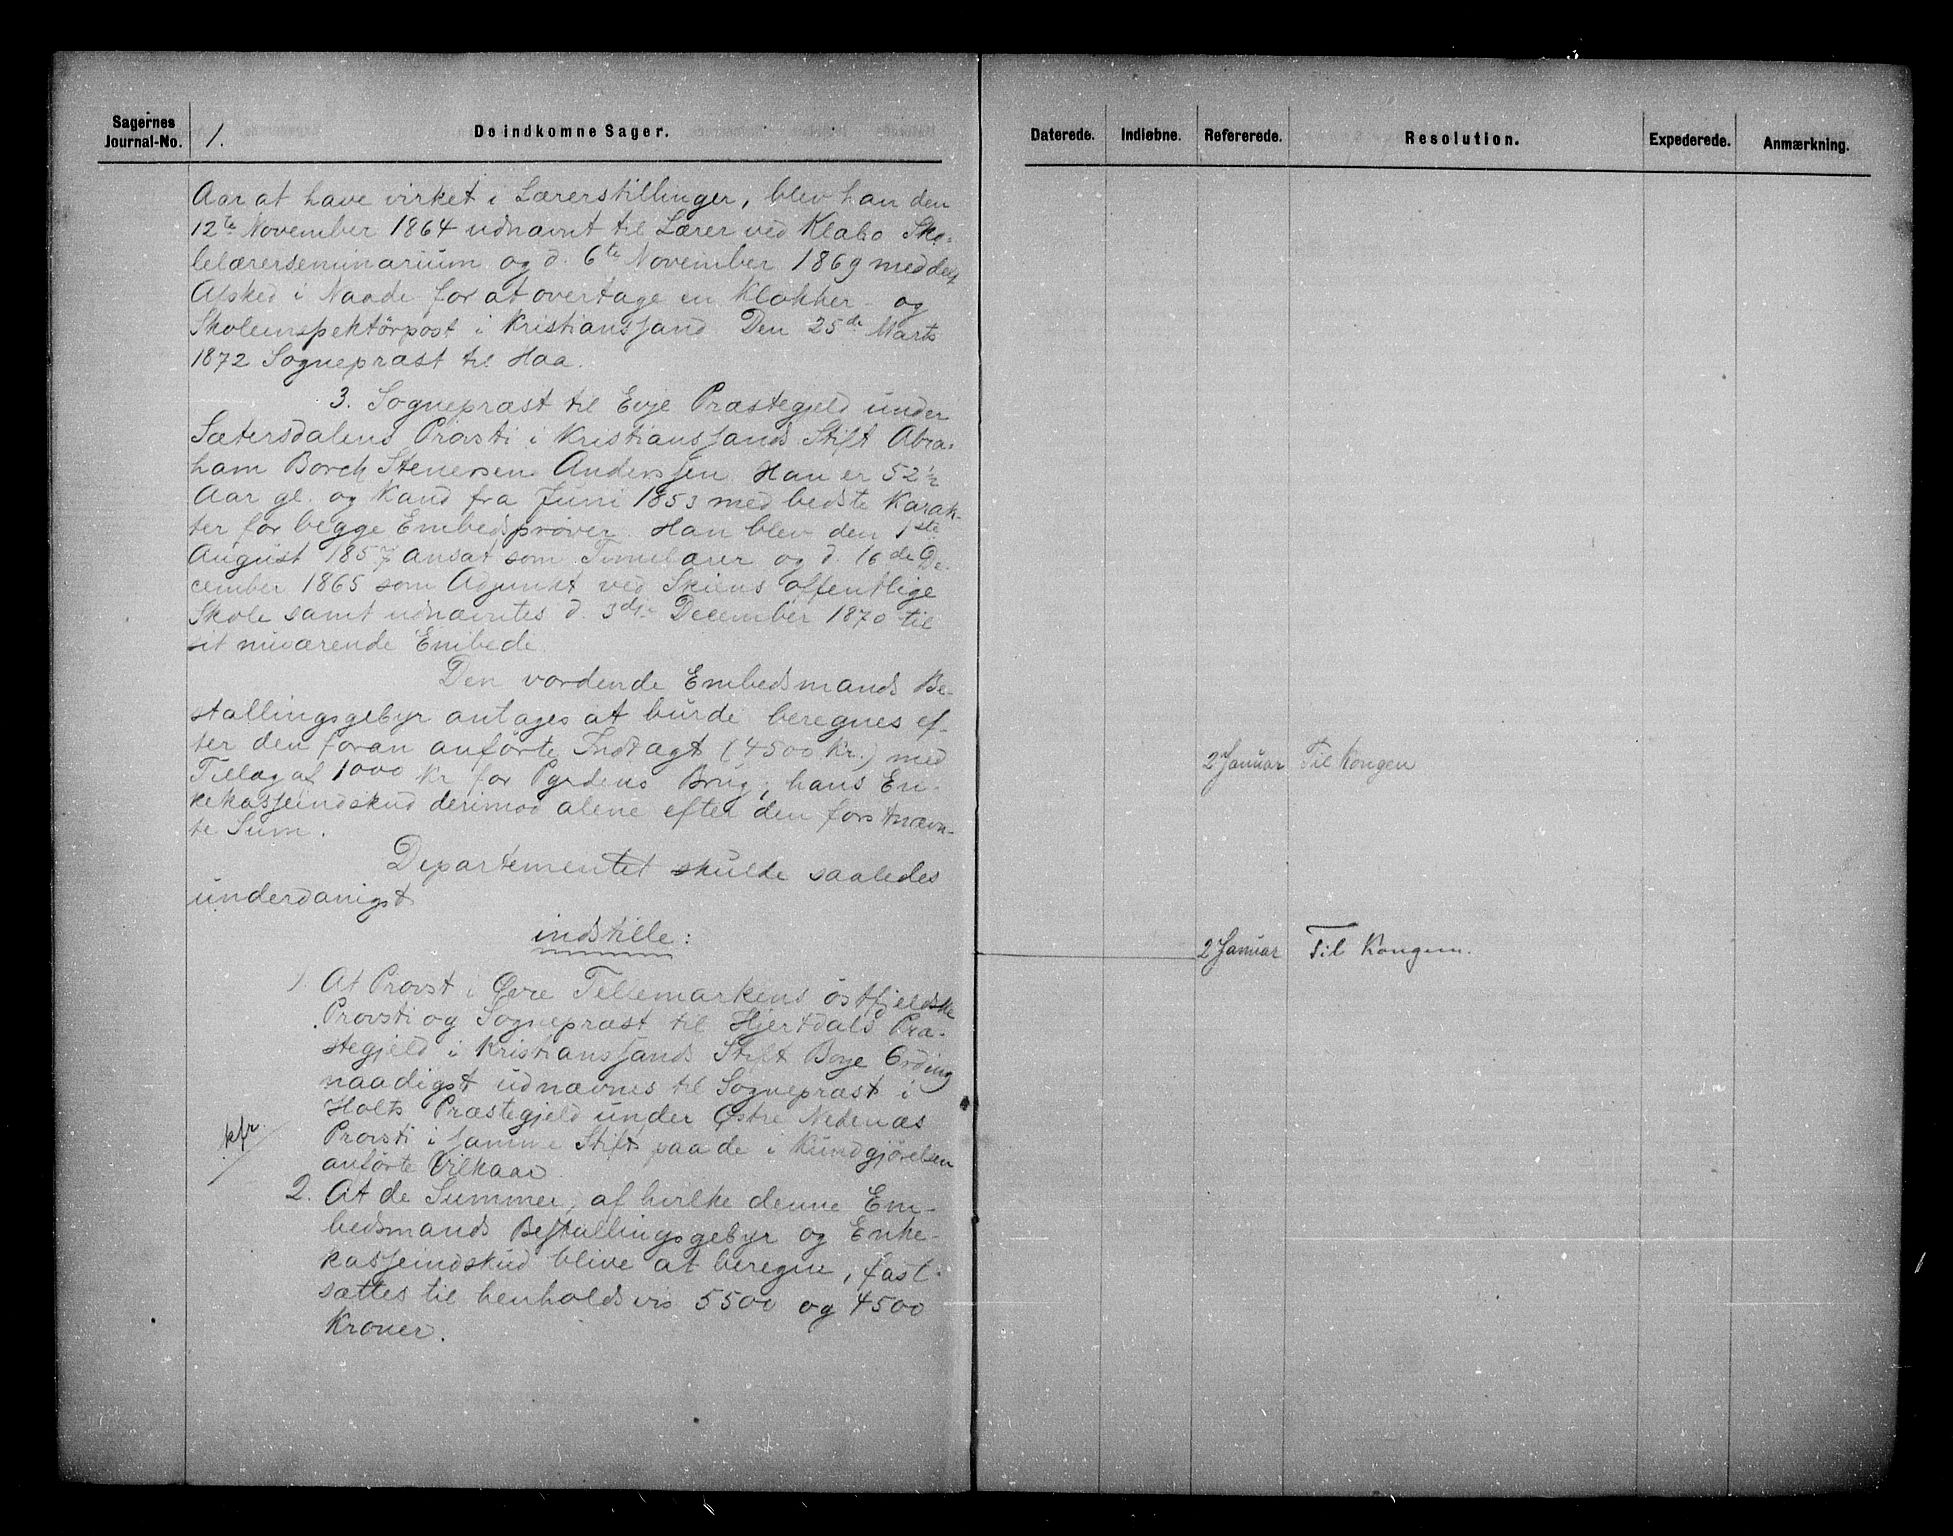 Sagernes
Journal-No.
1.
De indkomne Sager.
Aar at have virket i Lærerstillinger, blev han den
12te November 1864 udnævnt til Lærer ved Klæbo Sko-
lelærerseminarium og d. 6te November 1869 meddelt
Afsked i Naade for at overtage en Klokker- og
Skoleinspektörpost i Kristianssand. Den 25de Marts
1872 Sognepræst til Haa.
3. Sognepræst til Evje Præstegjeld under
Sætersdalens Provsti i Kristianssands Stift Abra-
ham Borch Stenersen Anderssen. Han er 52 1/2
Aar gl. og Kand fra Juni 1853 med bedste Karak-
ter for begge Embedsprøver. Han blev den 1ste
August 1857 ansat som Timelærer og d. 16de De-
cember 1865 som Adjunkt ved Skiens offentlige
Skole samt udnævntes d. 3dje December 1870 til
sit nuværende Embede.
Den vordende Embedsmands Be-
stallingsgebyr antages at burde beregnes ef-
ter den foran anförte Indtægt (4500 Kr.) med
Tillæg af 1000 Kr for Gaardens Brug, hans En-
kekasseindskud derimod alene efter den førstnævn-
te Sum.
Departementet skulde saaledes
underdanigst
indstille:
1. At Provst i Øvre Tellemarkens östfjeldske
Provsti og Sognepræst til Hjertdals Præ-
stegjeld i Kristianssands Stift Boye Ording
naadigst udnævnes til Sognepræst i
Holts Præstegjeld under Østre Nedenæs
Provsti i samme Stift paa de i Kundgjörelsen
anførte Vilkaar
kfr.
2. At de Summer, af hvilke denne Em-
bedsmands Bestallingsgebyr og Enke-
kasseindskud blive at beregne, fast-
sættes til henholdsvis 5500 og 4500
Kroner.
Daterede.
Indløbne.
Refererede.
Resolution.
Expederede.
Anmærkning.
2 Januar Til Kongen
2 Januar Til Kongen.